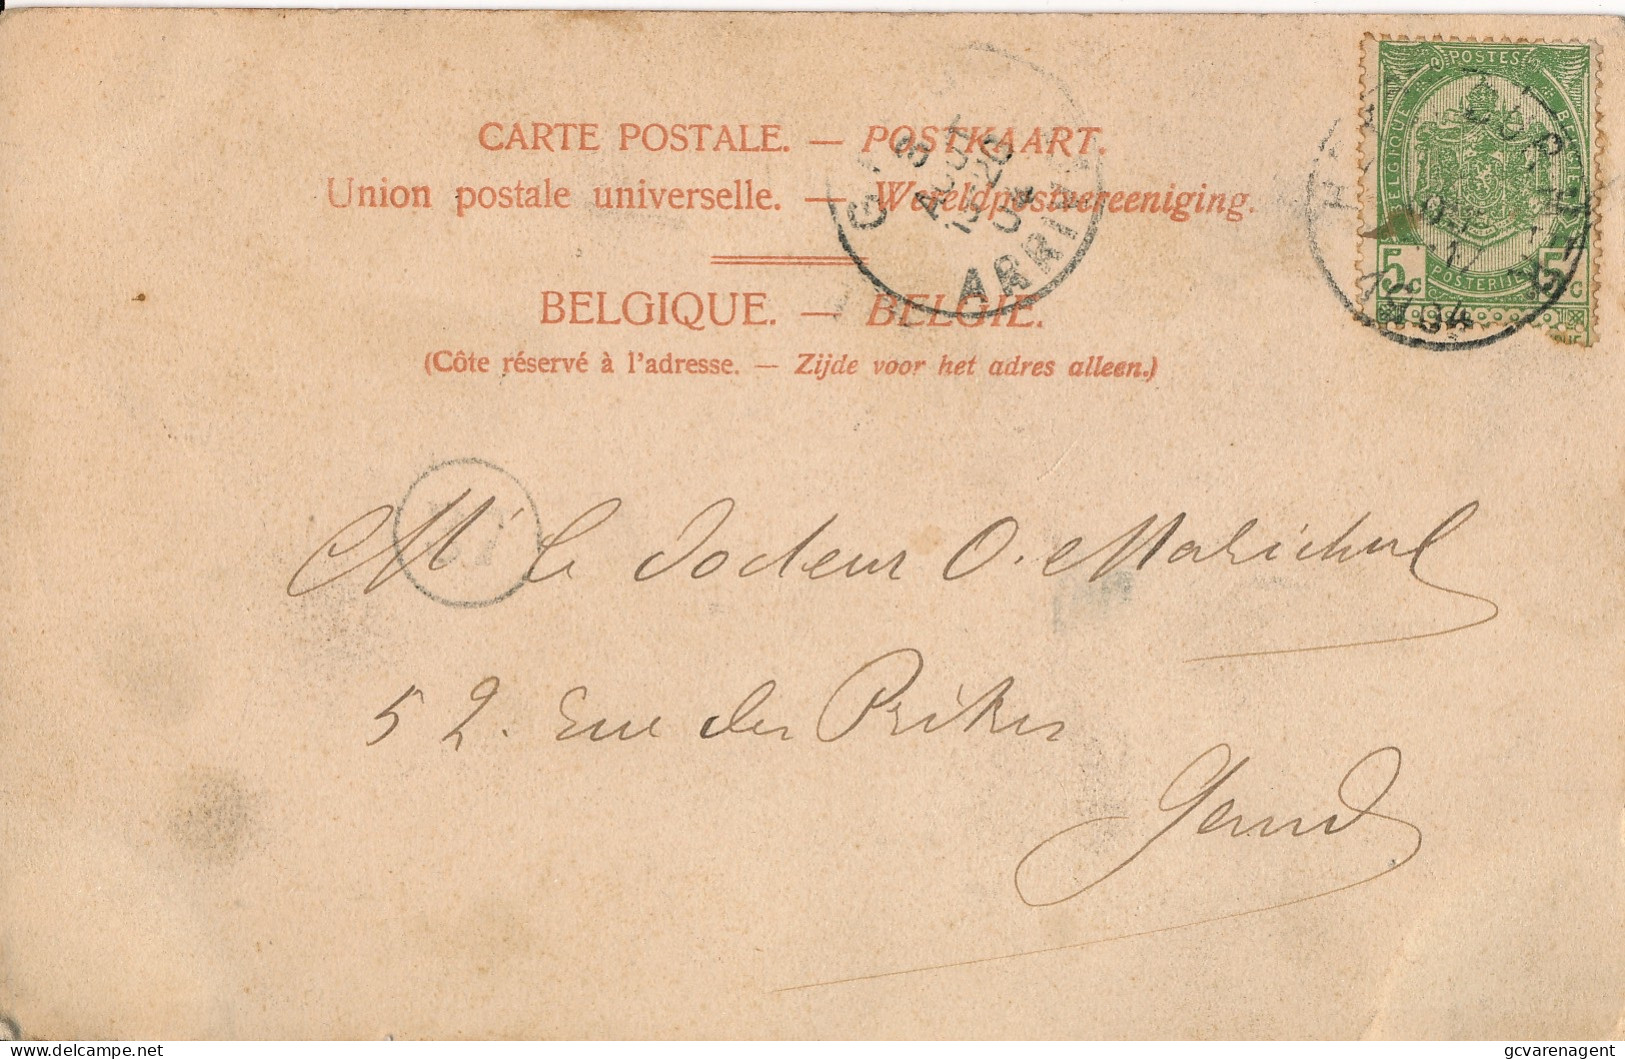 CARTE POSTALE. — POSTKAART.
Union postale universelle. — Wereldpostvereeniging.
BELGIQUE. — BELGIE.
(Côte réservé à l'adresse. — Zijde voor het adres alleen.)
POSTES
BELGIQUE
5 c
POSTERIJEN
5 c
AOUT
04
ARRIV
Mr le docteur O. Marichal
52. Rue des
Gand
delcampe.net
gcvarenagent